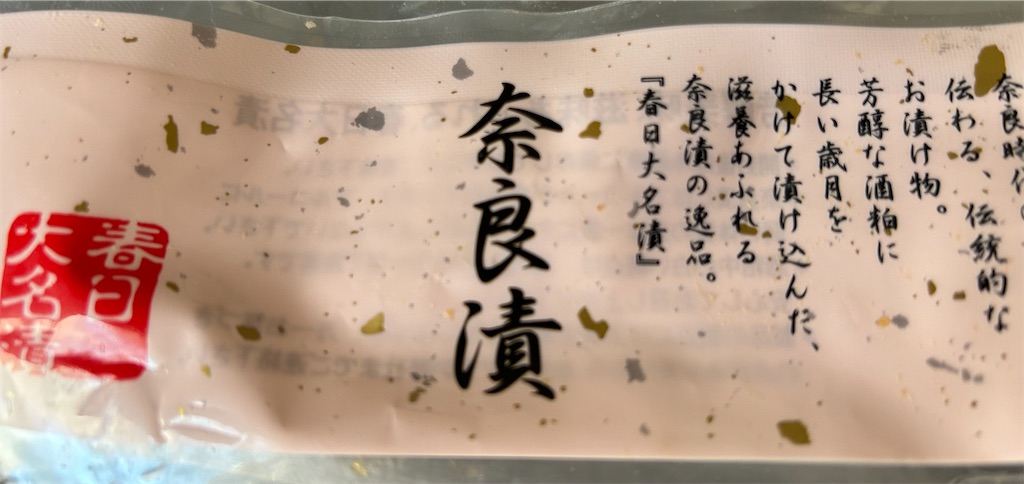 奈良時代
伝わる、伝統的な
お漬け物。
芳醇な酒粕に
長い歳月を
かけて漬け込んだ、
滋養あふれる
奈良漬の逸品。
『春日大名漬』
奈良漬
春日
大名漬